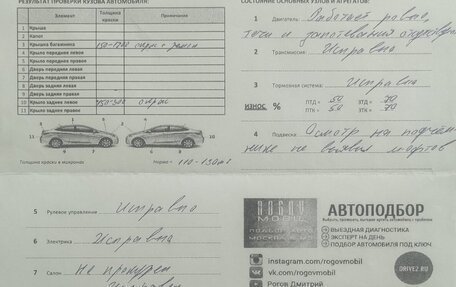 РЕЗУЛЬТАТ ПРОВЕРКИ КУЗОВА АВТОМОБИЛЯ:
Элемент Толщина краски Примечания
1 Крыша
2 Капот
3 Крышка багажника 150-1200 окрас + ремонт
4 Крыло переднее левое
5 Крыло переднее правое
6 Дверь передняя левая
7 Дверь передняя правая
8 Дверь задняя левая
9 Дверь задняя правая
10 Крыло заднее левое 150-300 окрас
11 Крыло заднее правое
Толщина краски в микронах Норма = 110-130
СОСТОЯНИЕ ОСНОВНЫХ УЗЛОВ И АГРЕГАТОВ:
1 Двигатель: Работает ровно,
течи и запотевания
2 Трансмиссия Исправно
3 Тормозная система: Исправно
ИЗНОС % ПТД = 50 ЗТД = 70
ПТК = 50 ЗТК = 70
4 Подвеска: Осмотр на
не выявил
5 Рулевое управление: Исправно
6 Электрика Исправна
7 Салон Не прокурен
РОГОВ
МОБИЛ
ПОДБОР АВТО
МОСКВА И МО
АВТОПОДБОР
ВЫЕЗДНАЯ ДИАГНОСТИКА
ЭКСПЕРТ НА ДЕНЬ
ПОДБОР АВТОМОБИЛЯ ПОД КЛЮЧ
instagram.com/rogovmobil
vk.com/rogovmobil
Рогов Дмитрий
DRIVE2.RU